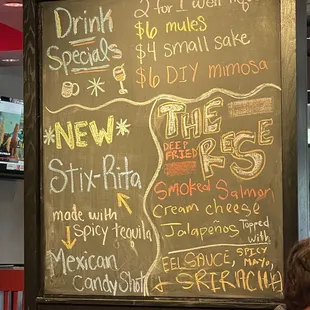 Drink
Specials
2 for 1 well
$6 mules
$4 small sake
$6 DIY mimosa
NEW
Stix-Rita
made with
spicy tequila
Mexican
Candy Shot
THE
DEEP
FRIED
REESE
Smoked Salmon
Cream cheese
Jalapeños Topped
with
EEL SAUCE, SPICY
MAYO,
& SRIRACHA